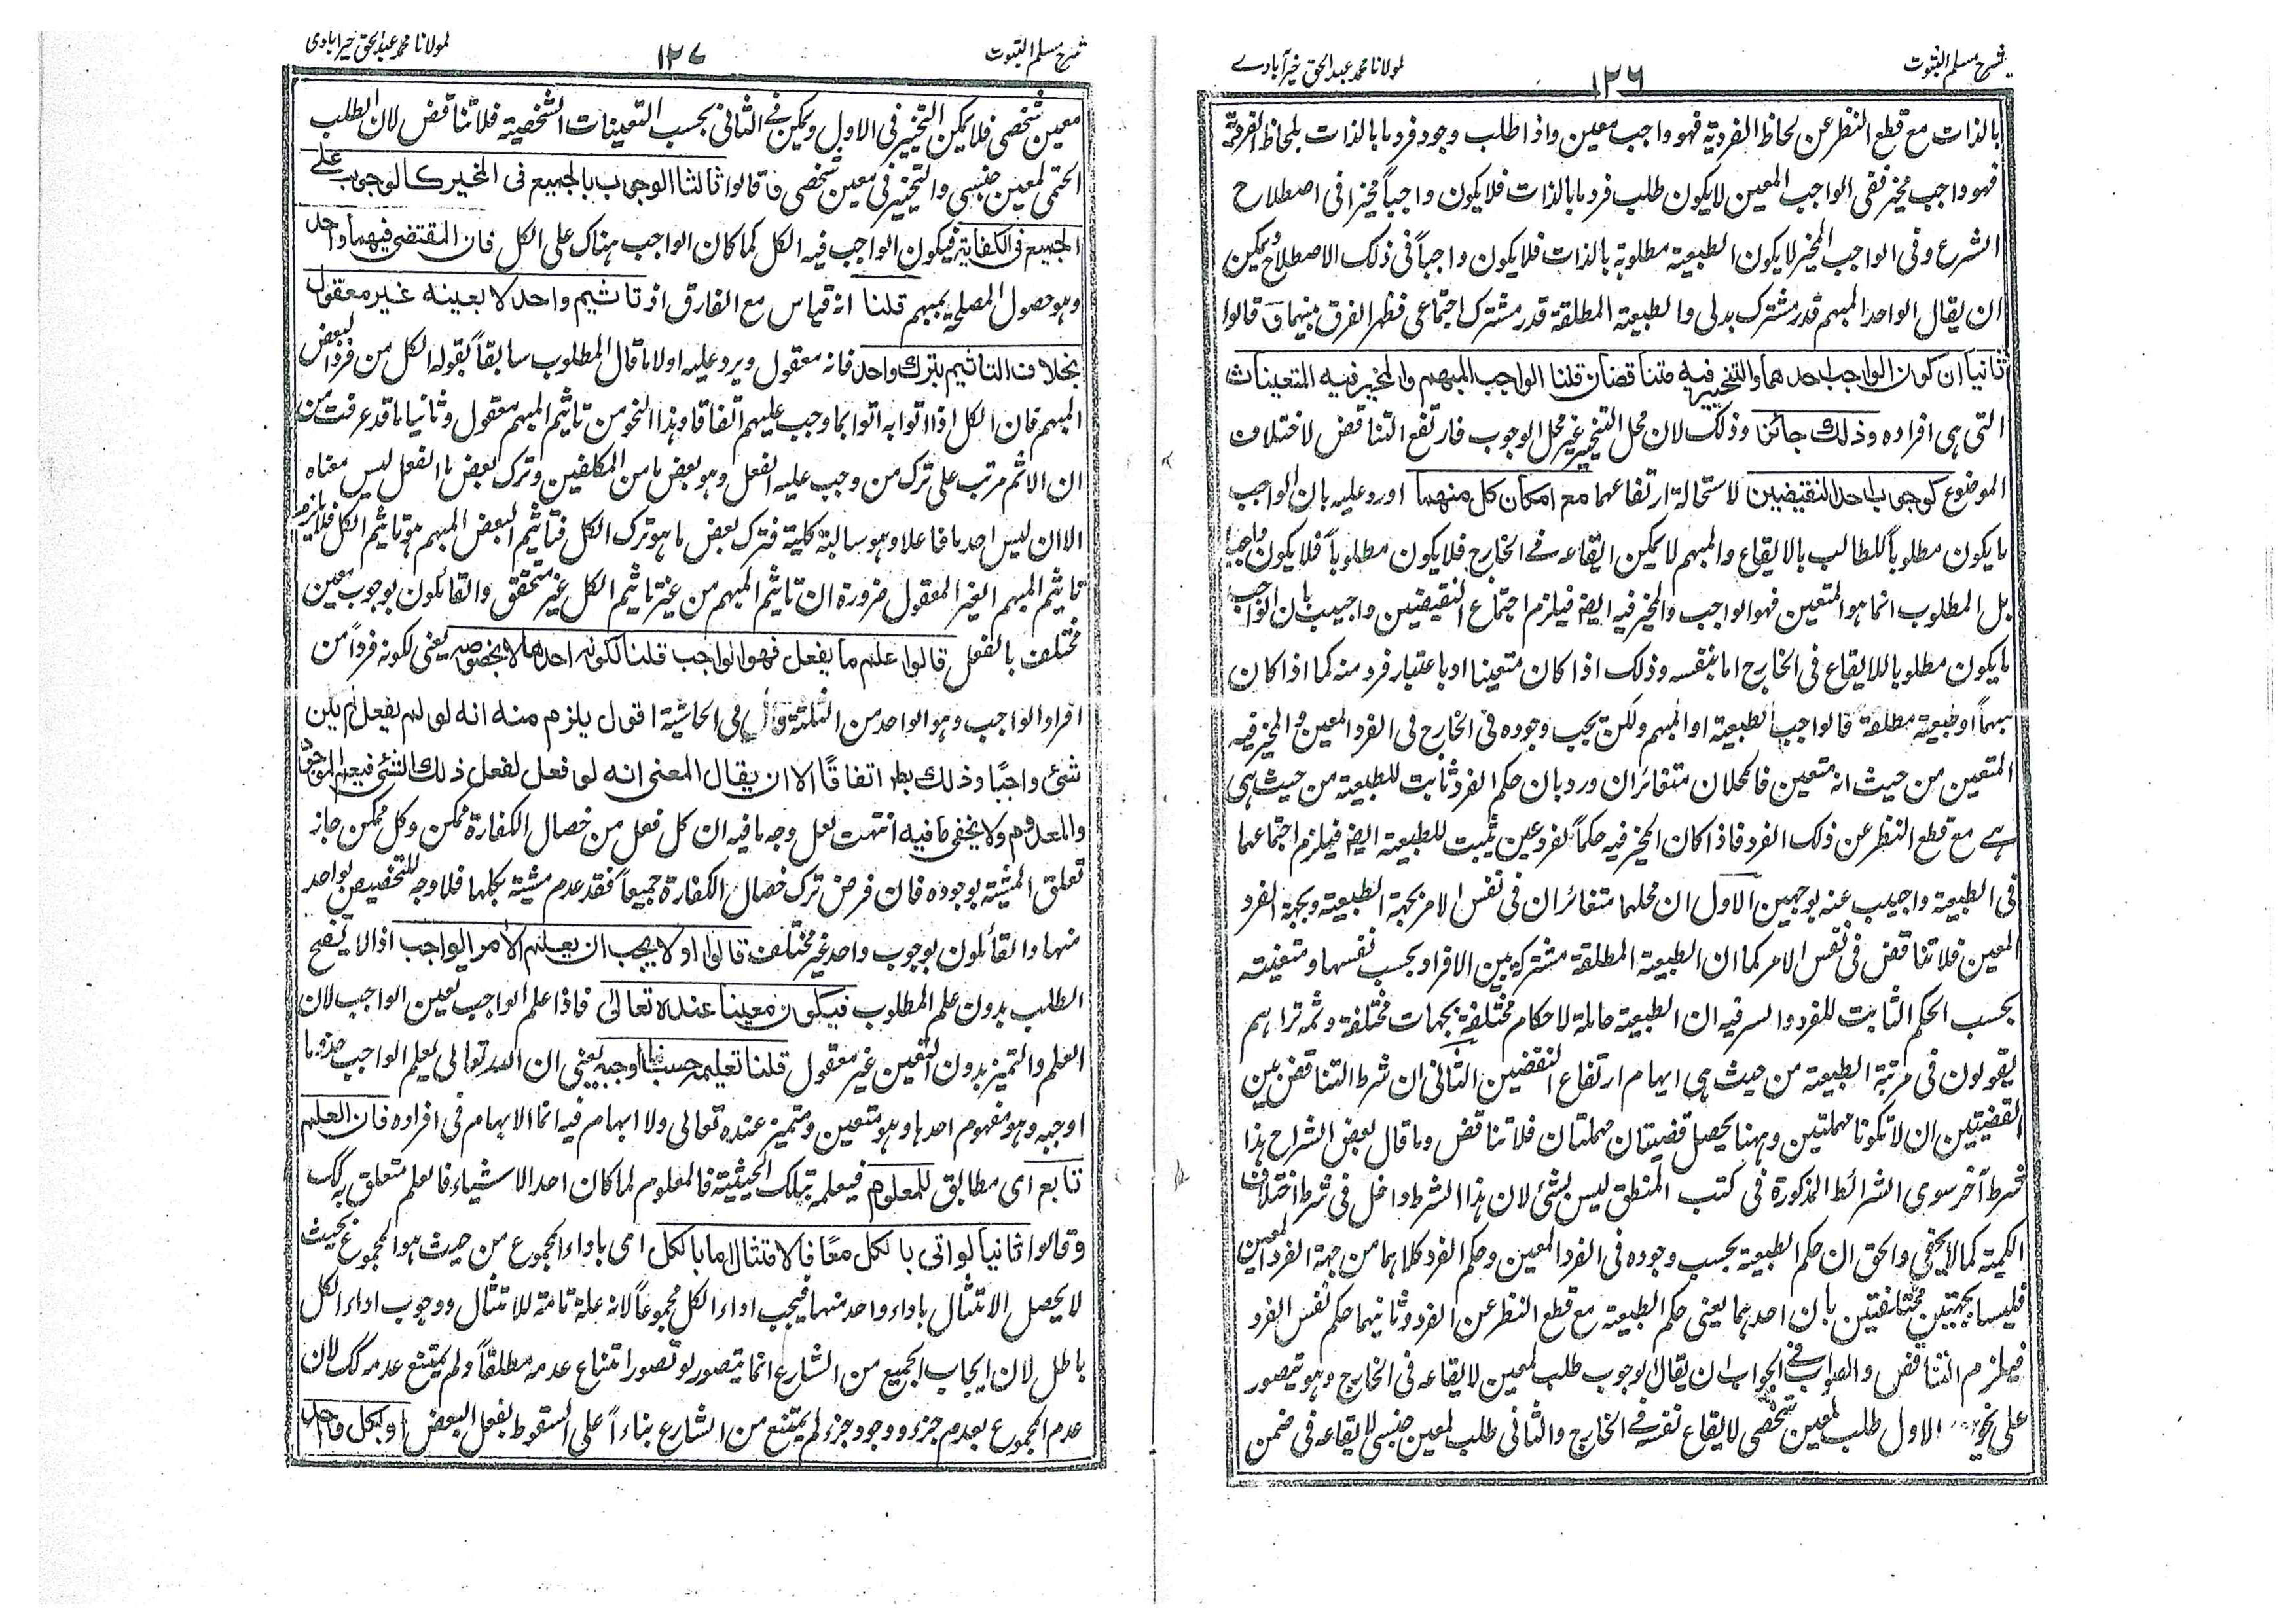 شرح مسلم الثبوت
١٢٦
لمولانا محمد عبد الحق خیرآبادے
بالذات مع قطع النظر عن لحاظ الفردية فهو واجب معين واذا طلب وجود فرد ما بالذات بلحاظ الفردية
فهو واجب مخير ففي الواجب المعين لا يكون طلب فرد ما بالذات فلا يكون واجباً مخيرا في اصطلاح
الشرع وفي الواجب المخير لا يكون الطبيعة مطلوبة بالذات فلا يكون واجباً في ذلك الاصطلاح ويمكن
ان يقال الواحد المبهم قدر مشترك بدلي والطبيعة المطلقة قدر مشترك اجتماعي فظهر الفرق بينهما ق قالوا
ثانيا ان كون الواجب احدهما والتخيير فيه متناقضان قلنا الواجب المبهم والمخير فيه المتعينات
التي هي افراده وذلك جائز وذلك لان محل التخيير غير محل الوجوب فارتفع التناقض لاختلاف
الموضوع كوجوب احد النقيضين لاستحالة ارتفاعهما مع امكان كل منهما اورد عليه بان الواجب
ما يكون مطلوباً للطالب بالايقاع والمبهم لا يمكن ايقاعه في الخارج فلا يكون مطلوباً فلا يكون واجباً
بل المطلوب انما هو المتعين فهو الواجب والمخير فيه ايضا فيلزم اجتماع النقيضين واجيب بان الواجب
ما يكون مطلوبا للايقاع في الخارج اما بنفسه وذلك اذا كان متعينا او باعتبار فرد منه كما اذا كان
مبهماً او طبيعة مطلقة فالواجب الطبيعة او المبهم ولكن يجب وجوده في الخارج في الفرد المعين والمخير فيه
المتعين من حيث انه متعين فالمحلان متغائران ورد بان حكم الفرد ثابت للطبيعة من حيث هي
هے مع قطع النظر عن ذلك الفرد فاذا كان المخير فيه حكماً لفرد عين يثبت للطبيعة ايضا فيلزم اجتماعهما
في الطبيعة واجيب عنه بوجهين الاول ان محلهما متغائران في نفس الامر بجهة الطبيعة وبجهة الفرد
المعين فلا تناقض في نفس الامر كما ان الطبيعة المطلقة مشتركة بين الافراد بحسب نفسها ومتعينة
بحسب الحكم الثابت للفرد والسر فيه ان الطبيعة حاملة لاحكام مختلفة بجهات مختلفة وثمه تراهم
يقولون في مرتبة الطبيعة من حيث هي ايهام ارتفاع النقيضين الثاني ان شرط التناقض بين
القضيتين ان لا تكونا مهملتين وههنا يحصل قضيتان مهملتان فلا تناقض وما قال بعض الشراح هذا
شرط آخر سوى الشرائط المذكورة في كتب المنطق ليس بشئ لان هذا الشرط داخل في شرط اختلاف
الكمية كما لا يخفى والحق ان حكم الطبيعة بحسب وجوده في الفرد المعين وحكم الفرد كلاهما من جهة الفرد المعين
فليسا بجهتين مختلفتين بان احدهما يعني حكم الطبيعة مع قطع النظر عن الفرد وثانيهما حكم نفس الفرد
فيلزم التناقض والصواب في الجواب ان يقال الوجوب طلب لمعين لايقاعه في الخارج وهو يتصور
على نحوين الاول طلب لمعين شخصي لايقاع نفسه في الخارج والثاني طلب لمعين جنسي لايقاعه في ضمن
شرح مسلم الثبوت
١٢٧
لمولانا محمد عبد الحق خیرآبادی
معين شخصي فلا يمكن التخيير في الاول ويمكن في الثاني بحسب التعينات الشخصية فلا تناقض لان الطلب
الحتمي لمعين جنسي والتخيير في معين شخصي ق قالوا ثالثا الوجوب بالجميع في المخير كالوجوب على
الجميع في الكفاية فيكون الواجب فيه الكل كما كان الواجب هناك على الكل فان المقتضى فيهما واحد
وهو حصول المصلحة بمبهم قلنا انه قياس مع الفارق اذ تاثيم واحد لا بعينه غير معقول
بخلاف التاثيم بترك واحد فانه معقول ويرد عليه اولا ما قال المطلوب سابقاً بقوله الكل من فرد البعض
المبهم فان الكل اذا اتوا به اتوا بما وجب عليهم اتفاقا وهذا النحو من تاثيم المبهم معقول وثانيا ما قد عرفت من
ان الاثم مرتب على ترك من وجب عليه الفعل وهو بعض ما من المكلفين وترك بعض ما الفعل ليس معناه
الا ان ليس احد ما فاعلا وهو سالبة كلية فترك بعض ما هو ترك الكل فتاثيم البعض المبهم هو تاثيم الكل فلا يلزم
تاثيم المبهم الغير المعقول ضرورة ان تاثيم المبهم من غير تاثيم الكل غير متحقق والقائلون بوجوب معين
مختلف بالفعل قالوا علم ما يفعل فهو الواجب قلنا لكونه احدها لا بخصوصه يعني لكونه فرداً من
افراد الواجب وهو الواحد من الثلثة وقال في الحاشية اقول يلزم منه انه لو لم يفعل لم يكن
شئ واجبًا وذلك بط اتفاقًا الا ان يقال المعنى انه لو فعل لفعل ذلك الشئ فيعلم الموجود
والمعدوم ولا يخفى ما فيه انتهت لعل وجه ما فيه ان كل فعل من خصال الكفارة ممكن وكل ممكن جاز
تعلق المشية بوجوده فان فرض ترك خصال الكفارة جميعاً فقد عدم مشية بكلها فلا وجه للتخصيص لواحد
منها والقائلون بوجوب واحد غير مختلف قالوا اولا يجب ان يعلم الامر الواجب اذ لا يصح
الطلب بدون علم المطلوب فيكون معينا عنده تعالى فاذا علم الواجب تعين الواجب لان
العلم والتميز بدون التعين غير معقول قلنا تعليمه حسب ما اوجبه يعني ان الله تعالى يعلم الواجب حذو ما
اوجبه وهو مفهوم احدها وهو متعين ومتميز عنده تعالى ولا ابهام فيه انما الابهام في افراده فان العلم
تابع اى مطابق للمعلوم فيعلمه بتلك الحيثية فالمعلوم لما كان احد الاشياء فالعلم متعلق به كك
وقالوا ثانيا لو اتى بالكل معًا فالامتثال اما بالكل اى باداء المجموع من حيث هو المجموع بحيث
لا يحصل الامتثال باداء واحد منهما فيجب اداء الكل مجموعاً لانه علة تامة للامتثال ووجوب اداء الكل
باطل لان ايجاب الجميع من الشارع انما يتصور لو تصور امتناع عدمه مطلقاً ولم يمتنع عدمه كك لان
عدم المجموع بعدم جزء ووجود جزء لم يمتنع من الشارع بناءاً على السقوط بفعل البعض او بكل واحد